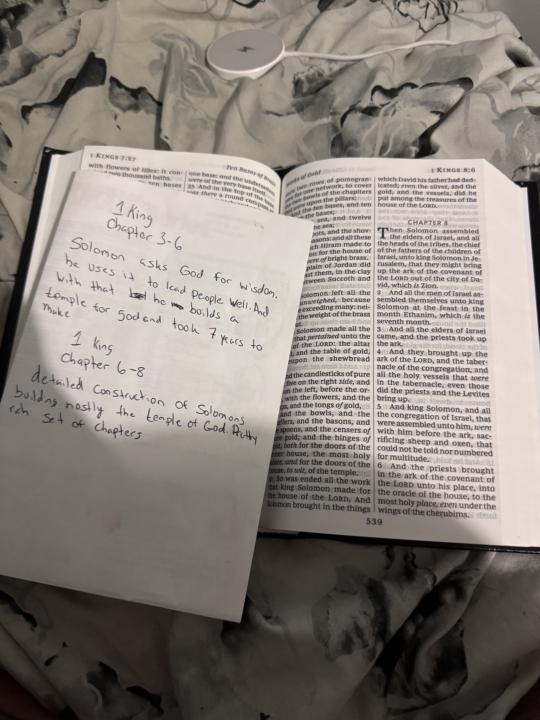 1 KINGS 7:27
with flowers of lilies: it con-
two thousand baths.
ten bases
Ten Bases of
one base: and the undersetters
were of the very base itself.
35 And in the top of the base
was there a round compass
1 King
Chapter 3-6
Solomon asks God for wisdom.
he uses it to lead people well. And
with that he builds a
temple for god and took 7 years to
make
1 King
Chapter 6-8
detailed Construction of Solomons
building mostly the temple of God. Pretty
rich set of Chapters
of Gold
two rows of pomegran-
one network, to cover
bowls of the chapiters
upon the pillars;
the ten bases, and ten
bases;
sea,
and the shov-
basons: and all these
Hiram made to
for the house of
were of bright brass.
plain of Jordan did
cast them, in the clay
between Succoth and
Solomon left all the
unweighed, because
exceeding many: nei-
the weight of the brass
Solomon made all the
that pertained unto the
the LORD: the altar
and the table of gold,
upon the shewbread
the candlesticks of pure
five on the right side, and
on the left, before the or-
with the flowers, and the
and the tongs of gold,
and the bowls, and the
and the basons, and
spoons, and the censers of
gold; and the hinges of
both for the doors of the
house, the most holy
and for the doors of the
to wit, of the temple.
So was ended all the work
that king Solomon made for
the house of the LORD. And
Solomon brought in the things
1 KINGS 8:6
which David his father had ded-
icated; even the silver, and the
gold, and the vessels, did he
put among the treasures of the
house of the LORD.
CHAPTER 8
Then Solomon assembled
the elders of Israel, and all
the heads of the tribes, the chief
of the fathers of the children of
Israel, unto king Solomon in Je-
rusalem, that they might bring
up the ark of the covenant of
the LORD out of the city of Da-
vid, which is Zion.
2 And all the men of Israel as-
sembled themselves unto king
Solomon at the feast in the
month Ethanim, which is the
seventh month.
3 And all the elders of Israel
came, and the priests took up
the ark.
4 And they brought up the
ark of the LORD, and the taber-
nacle of the congregation, and
all the holy vessels that were
in the tabernacle, even those
did the priests and the Levites
bring up.
5 And king Solomon, and all
the congregation of Israel, that
were assembled unto him, were
with him before the ark, sac-
rificing sheep and oxen, that
could not be told nor numbered
for multitude.
6 And the priests brought
in the ark of the covenant of
the LORD unto his place, into
the oracle of the house, to the
most holy place, even under the
wings of the cherubims.
539